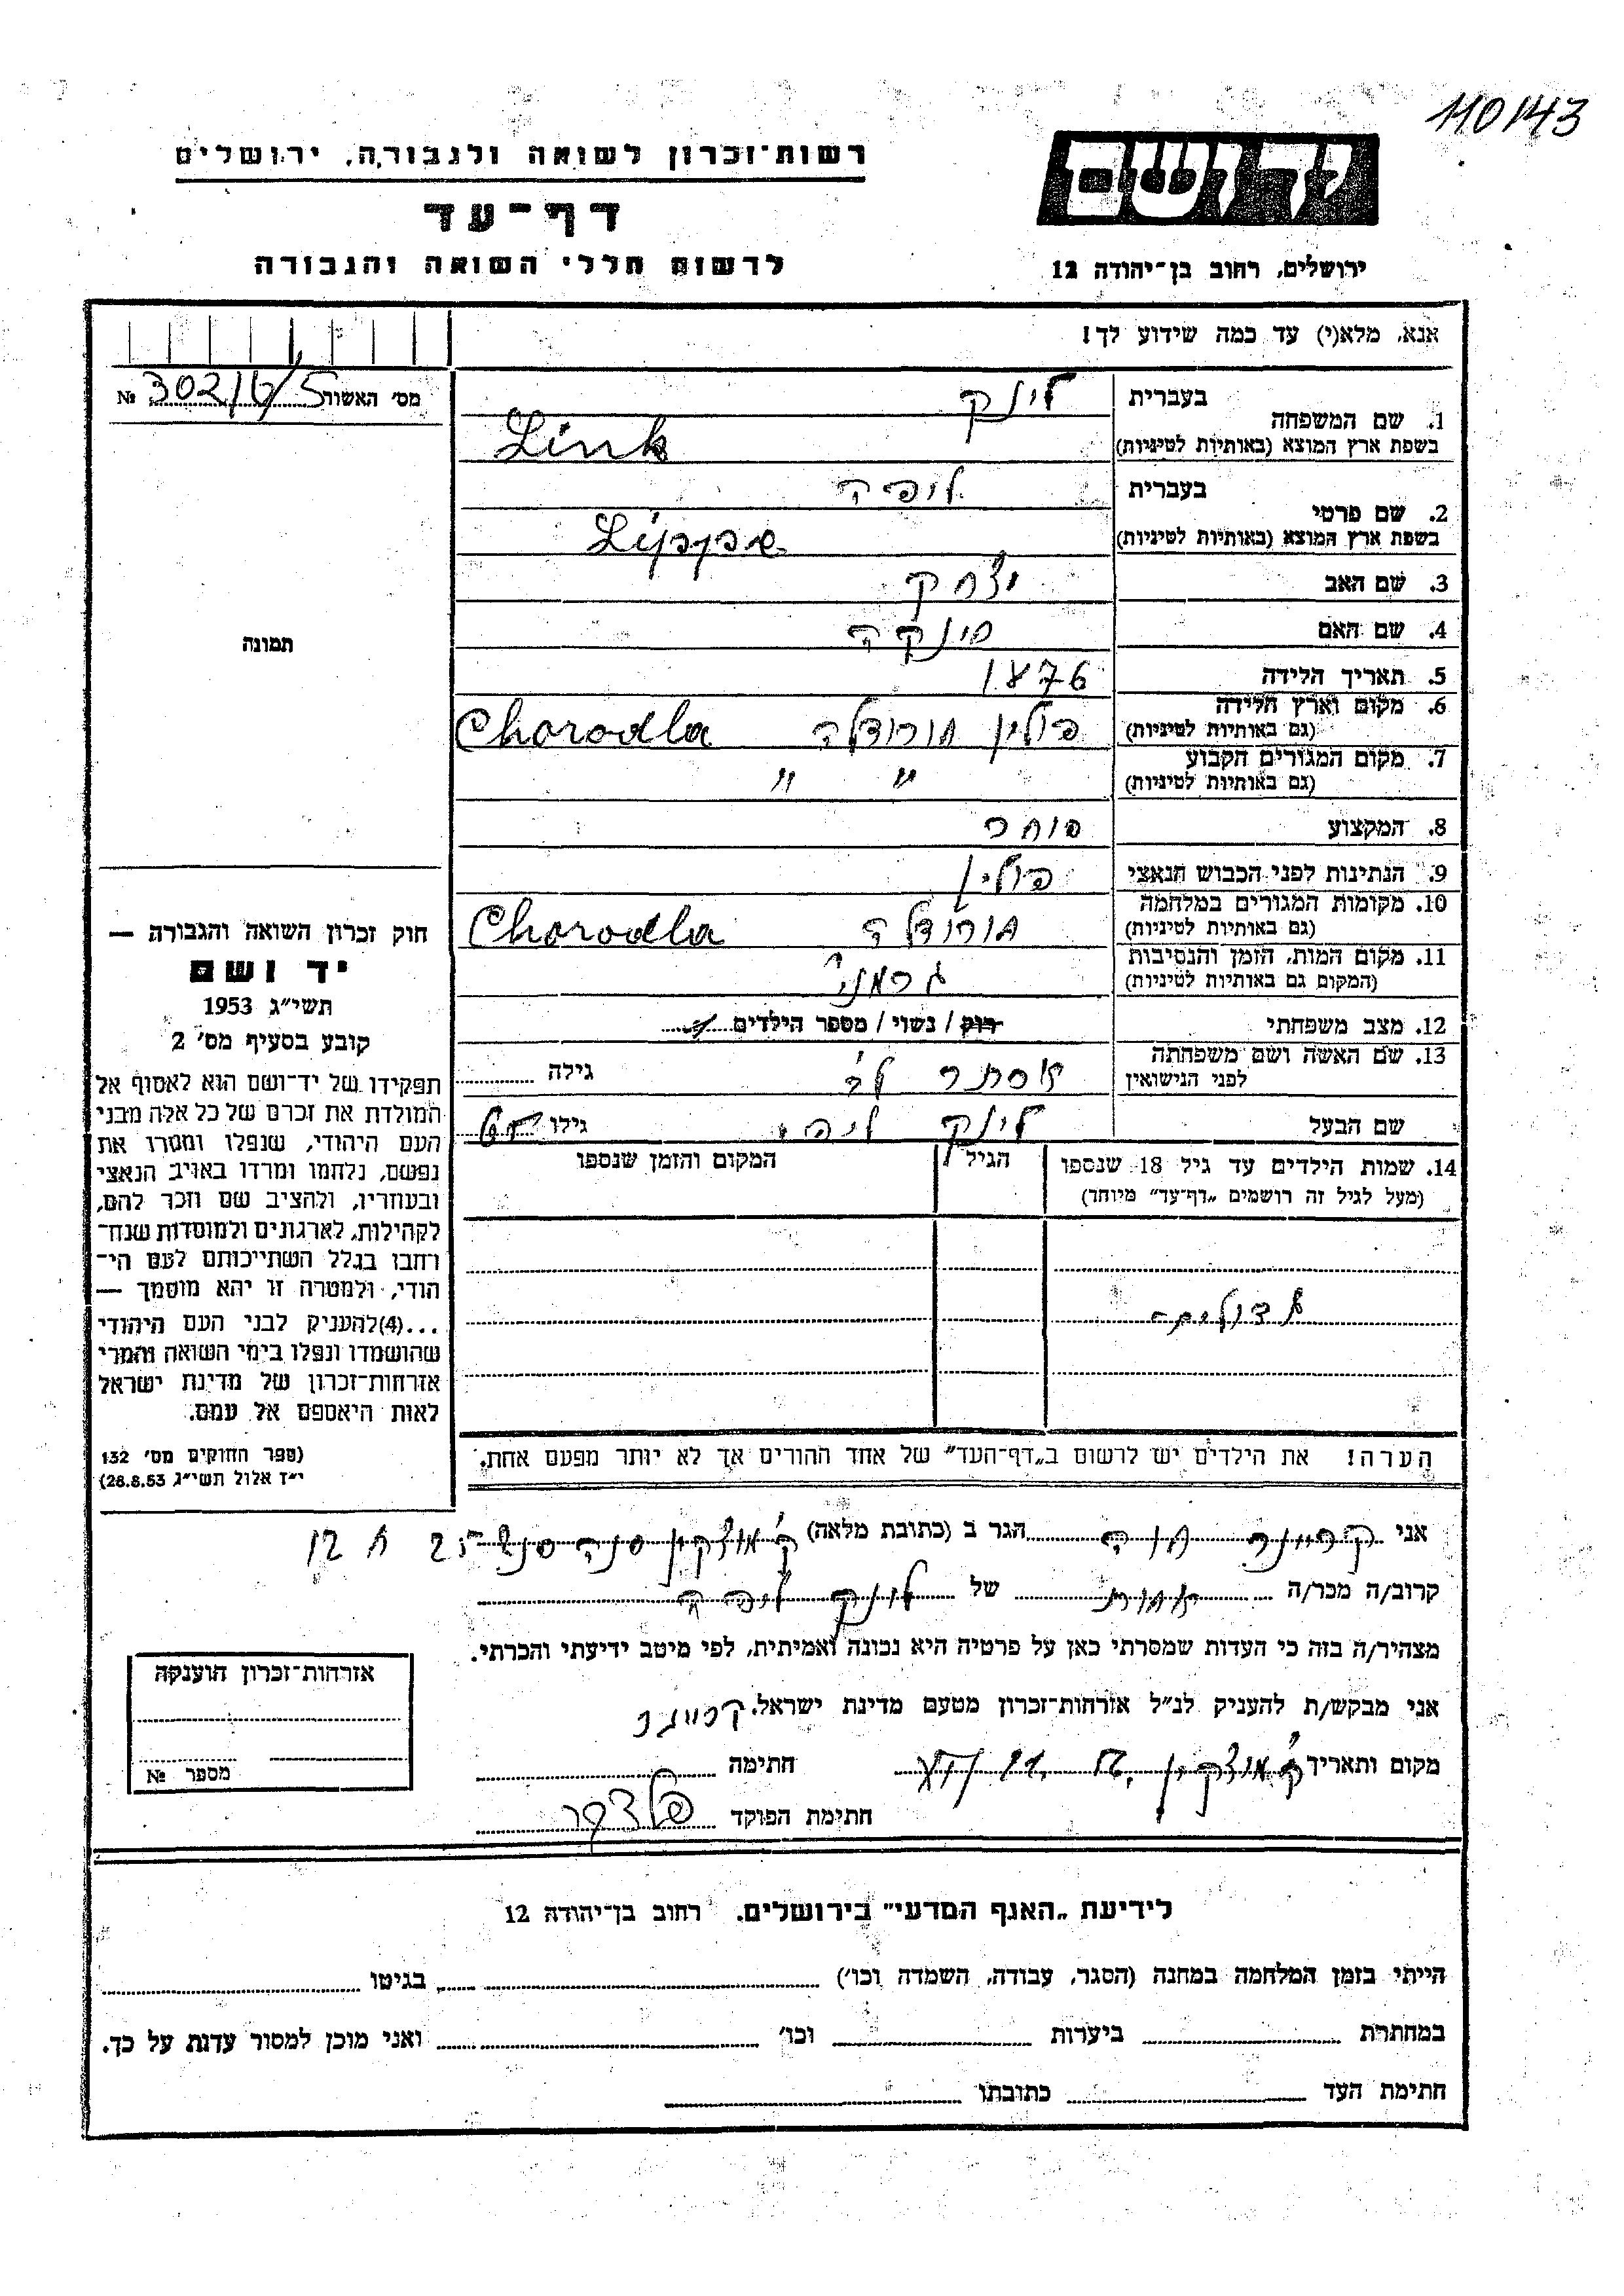 110143
רשות־זכרון לשואה ולגבורה, ירושלים
יד ושם
דף־עד
לרשום חללי השואה והגבורה
ירושלים, רחוב בן־יהודה 12
אנא, מלא(י) עד כמה שידוע לך!
מס' האשור 302/6/5 №
1. שם המשפחה
בעברית לינק
בשפת ארץ המוצא (באותיות לטיניות) Link
2. שם פרטי
בעברית ליפה
בשפת ארץ המוצא (באותיות לטיניות) Lippe
3. שם האב יצחק
4. שם האם
5. תאריך הלידה 1876
6. מקום וארץ הלידה פולין הורודלה Chorodla
(גם באותיות לטיניות)
7. מקום המגורים הקבוע " "
(גם באותיות לטיניות)
8. המקצוע סוחר
9. הנתינות לפני הכבוש הנאצי פולין
10. מקומות המגורים במלחמה הורודלה Chorodla
(גם באותיות לטיניות)
11. מקום המות, הזמן והנסיבות
(המקום גם באותיות לטיניות)
12. מצב משפחתי רוק / נשוי / מספר הילדים
13. שם האשה ושם משפחתה אסתר גילה
לפני הנישואין
שם הבעל לינק ליפה גילו
14. שמות הילדים עד גיל 18 שנספו הגיל המקום והזמן שנספו
(מעל לגיל זה רושמים „דף־עד” מיוחד)
תמונה
חוק זכרון השואה והגבורה —
יד ושם
תשי״ג 1953
קובע בסעיף מס' 2
תפקידו של יד־ושם הוא לאסוף אל
המולדת את זכרם של כל אלה מבני
העם היהודי, שנפלו ומסרו את
נפשם, נלחמו ומרדו באויב הנאצי
ובעוזריו, ולהציב שם וזכר להם,
לקהילות, לארגונים ולמוסדות שנח־
רחבו בגלל השתייכותם לעם הי־
הודי, ולמטרה זו יהא מוסמך —
...(4)להעניק לבני העם היהודי
שהושמדו ונפלו בימי השואה והמרי
אזרחות־זכרון של מדינת ישראל
לאות היאספם אל עמם.
(ספר החוקים מס' 132
י״ז אלול תשי״ג 28.8.53)
הערה! את הילדים יש לרשום ב„דף־העד” של אחד ההורים אך לא יותר מפעם אחת.
אני הגר ב (כתובת מלאה)
קרוב/ה מכר/ה אחות של לינק ליפה
מצהיר/ה בזה כי העדות שמסרתי כאן על פרטיה היא נכונה ואמיתית, לפי מיטב ידיעתי והכרתי.
אני מבקש/ת להעניק לנ״ל אזרחות־זכרון מטעם מדינת ישראל.
מקום ותאריך חתימה
חתימת הפוקד
אזרחות־זכרון הוענקה
מספר №
לידיעת „האגף המדעי” בירושלים, רחוב בן־יהודה 12
הייתי בזמן המלחמה במחנה (הסגר, עבודה, השמדה וכו') בגיטו
במחתרת ביערות וכו' ואני מוכן למסור עדות על כך.
חתימת העד כתובתו